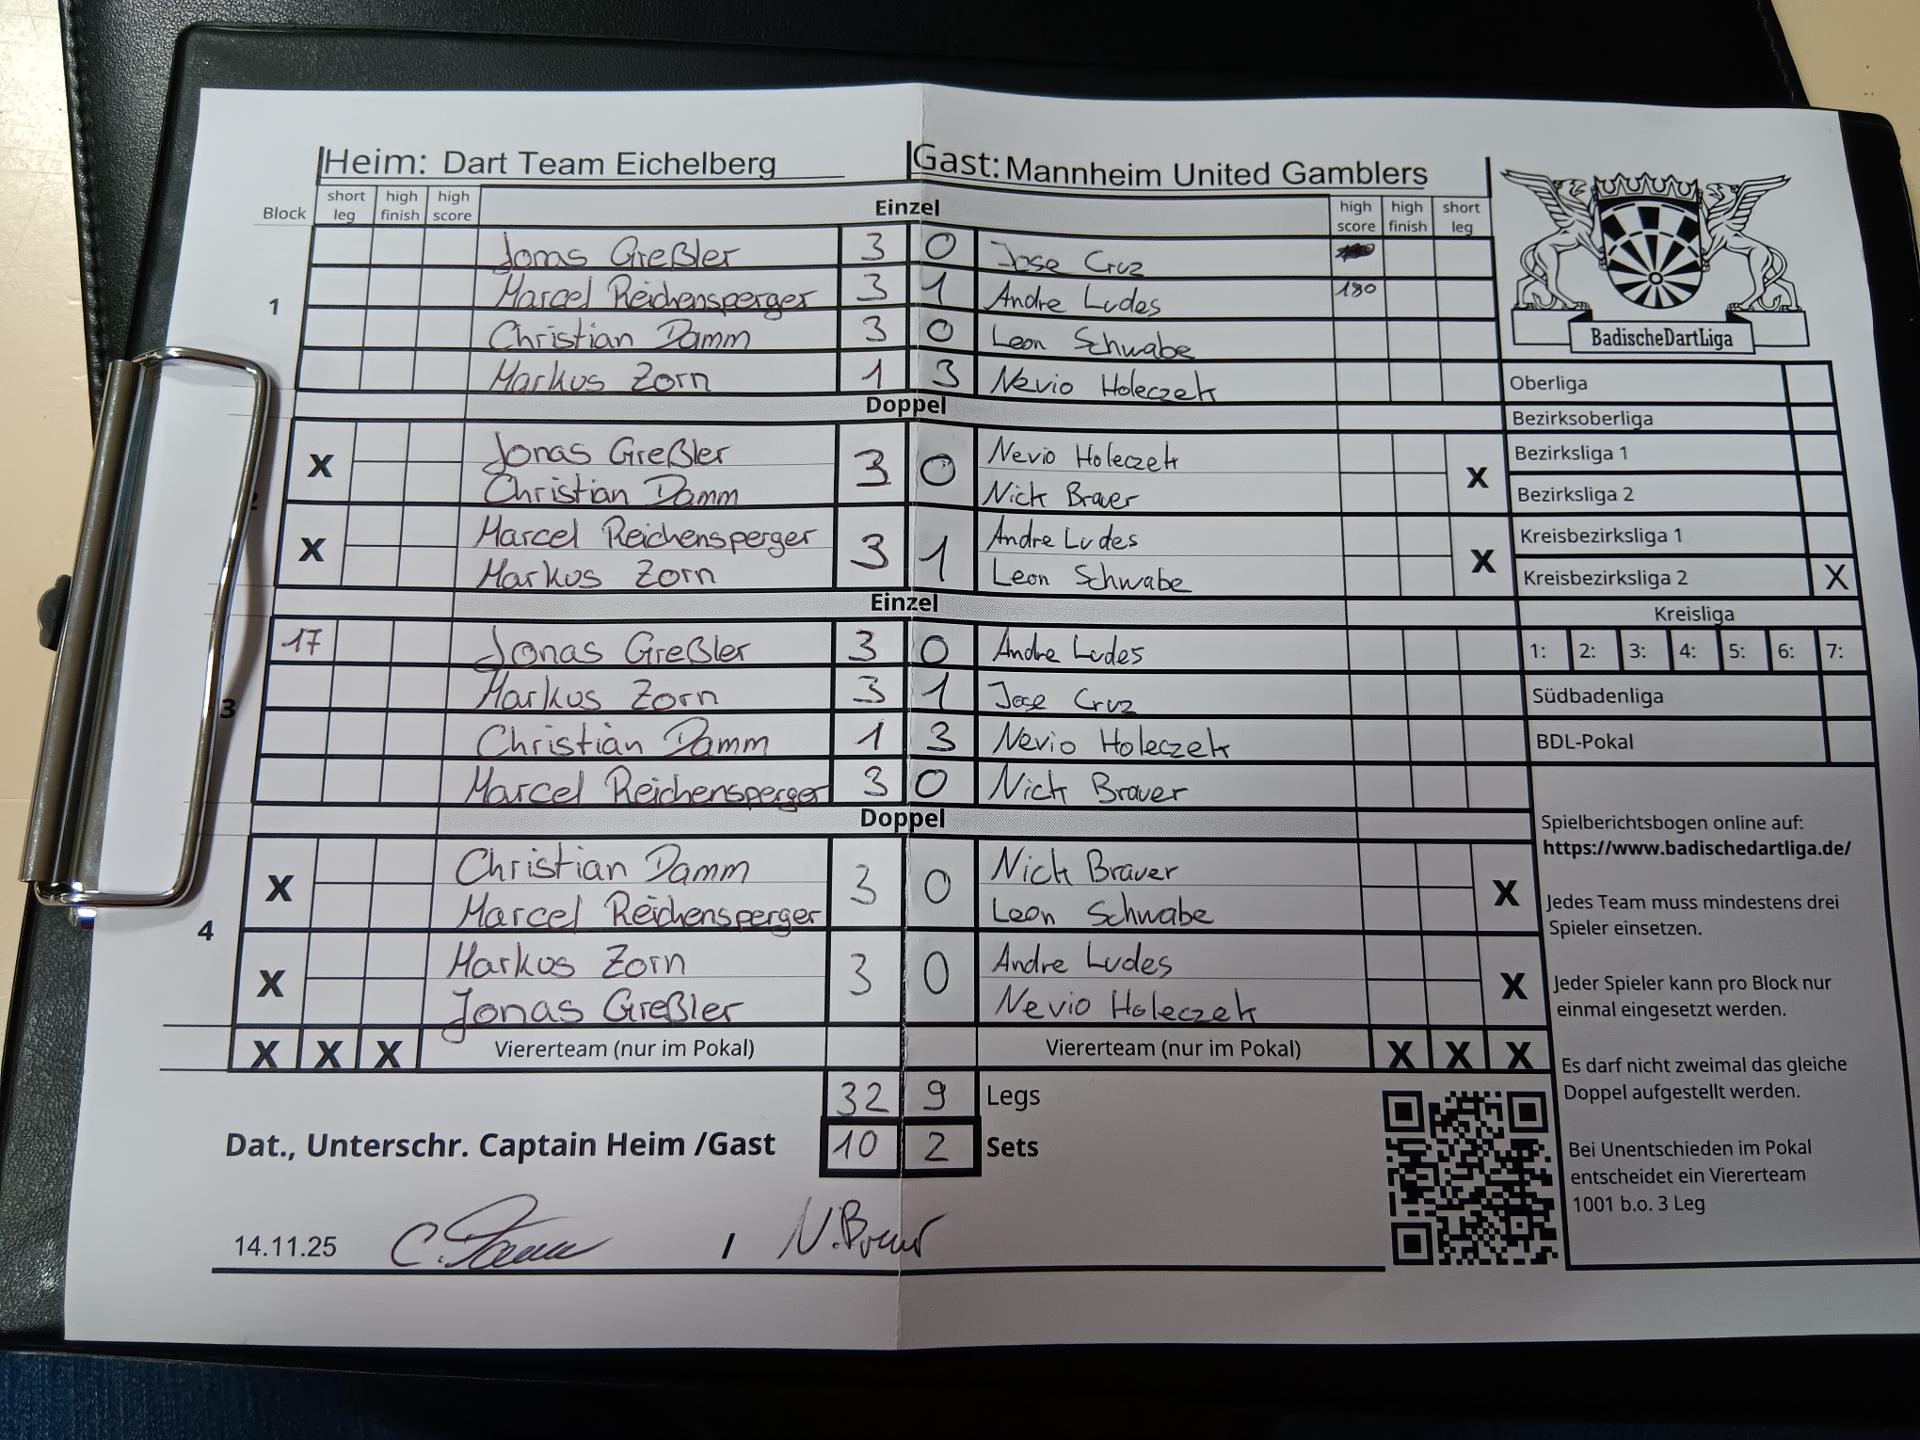 Heim: Dart Team Eichelberg Gast: Mannheim United Gamblers
Block short leg high finish high score Einzel high score high finish short leg
Jonas Greßler 3 0 Jose Cruz
Marcel Reichensperger 3 1 Andre Ludes 180
1
Christian Damm 3 0 Leon Schwabe
Markus Zorn 1 3 Nevio Holeczek
Doppel
X Jonas Greßler 3 0 Nevio Holeczek X
Christian Damm Nick Brauer
2
X Marcel Reichensperger 3 1 Andre Ludes X
Markus Zorn Leon Schwabe
Einzel
17 Jonas Greßler 3 0 Andre Ludes
Markus Zorn 3 1 Jose Cruz
3
Christian Damm 1 3 Nevio Holeczek
Marcel Reichensperger 3 0 Nick Brauer
Doppel
X Christian Damm 3 0 Nick Brauer X
Marcel Reichensperger Leon Schwabe
4
X Markus Zorn 3 0 Andre Ludes X
Jonas Greßler Nevio Holeczek
X X X Viererteam (nur im Pokal) Viererteam (nur im Pokal) X X X
32 9 Legs
Dat., Unterschr. Captain Heim /Gast 10 2 Sets
14.11.25 C. Damm / N. Brauer
BadischeDartLiga
Oberliga
Bezirksoberliga
Bezirksliga 1
Bezirksliga 2
Kreisbezirksliga 1
Kreisbezirksliga 2 X
Kreisliga
1: 2: 3: 4: 5: 6: 7:
Südbadenliga
BDL-Pokal
Spielberichtsbogen online auf:
https://www.badischedartliga.de/
Jedes Team muss mindestens drei
Spieler einsetzen.
Jeder Spieler kann pro Block nur
einmal eingesetzt werden.
Es darf nicht zweimal das gleiche
Doppel aufgestellt werden.
Bei Unentschieden im Pokal
entscheidet ein Viererteam
1001 b.o. 3 Leg